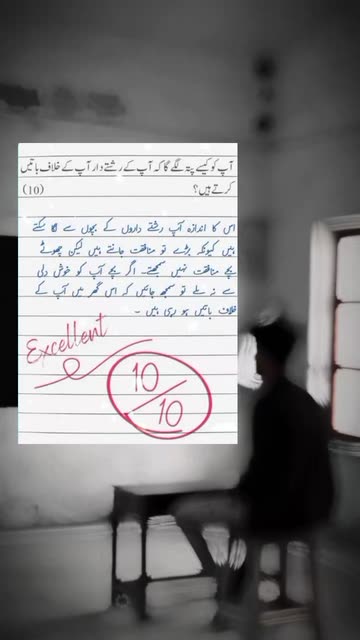 آپ کو کیسے پتہ لگے گا کہ آپ کے رشتے دار آپ کے خلاف باتیں
کرتے ہیں؟ (10)
اس کا اندازہ آپ رشتے داروں کے بچوں سے لگا سکتے
ہیں کیونکہ بڑے تو منافقت جانتے ہیں لیکن چھوٹے
بچے منافقت نہیں سمجھتے۔ اگر بچے آپ کو خوش دلی
سے نہ ملے تو سمجھ جائیں کہ اس گھر میں آپ کے
خلاف باتیں ہو رہی ہیں ۔
Excellent
10/10